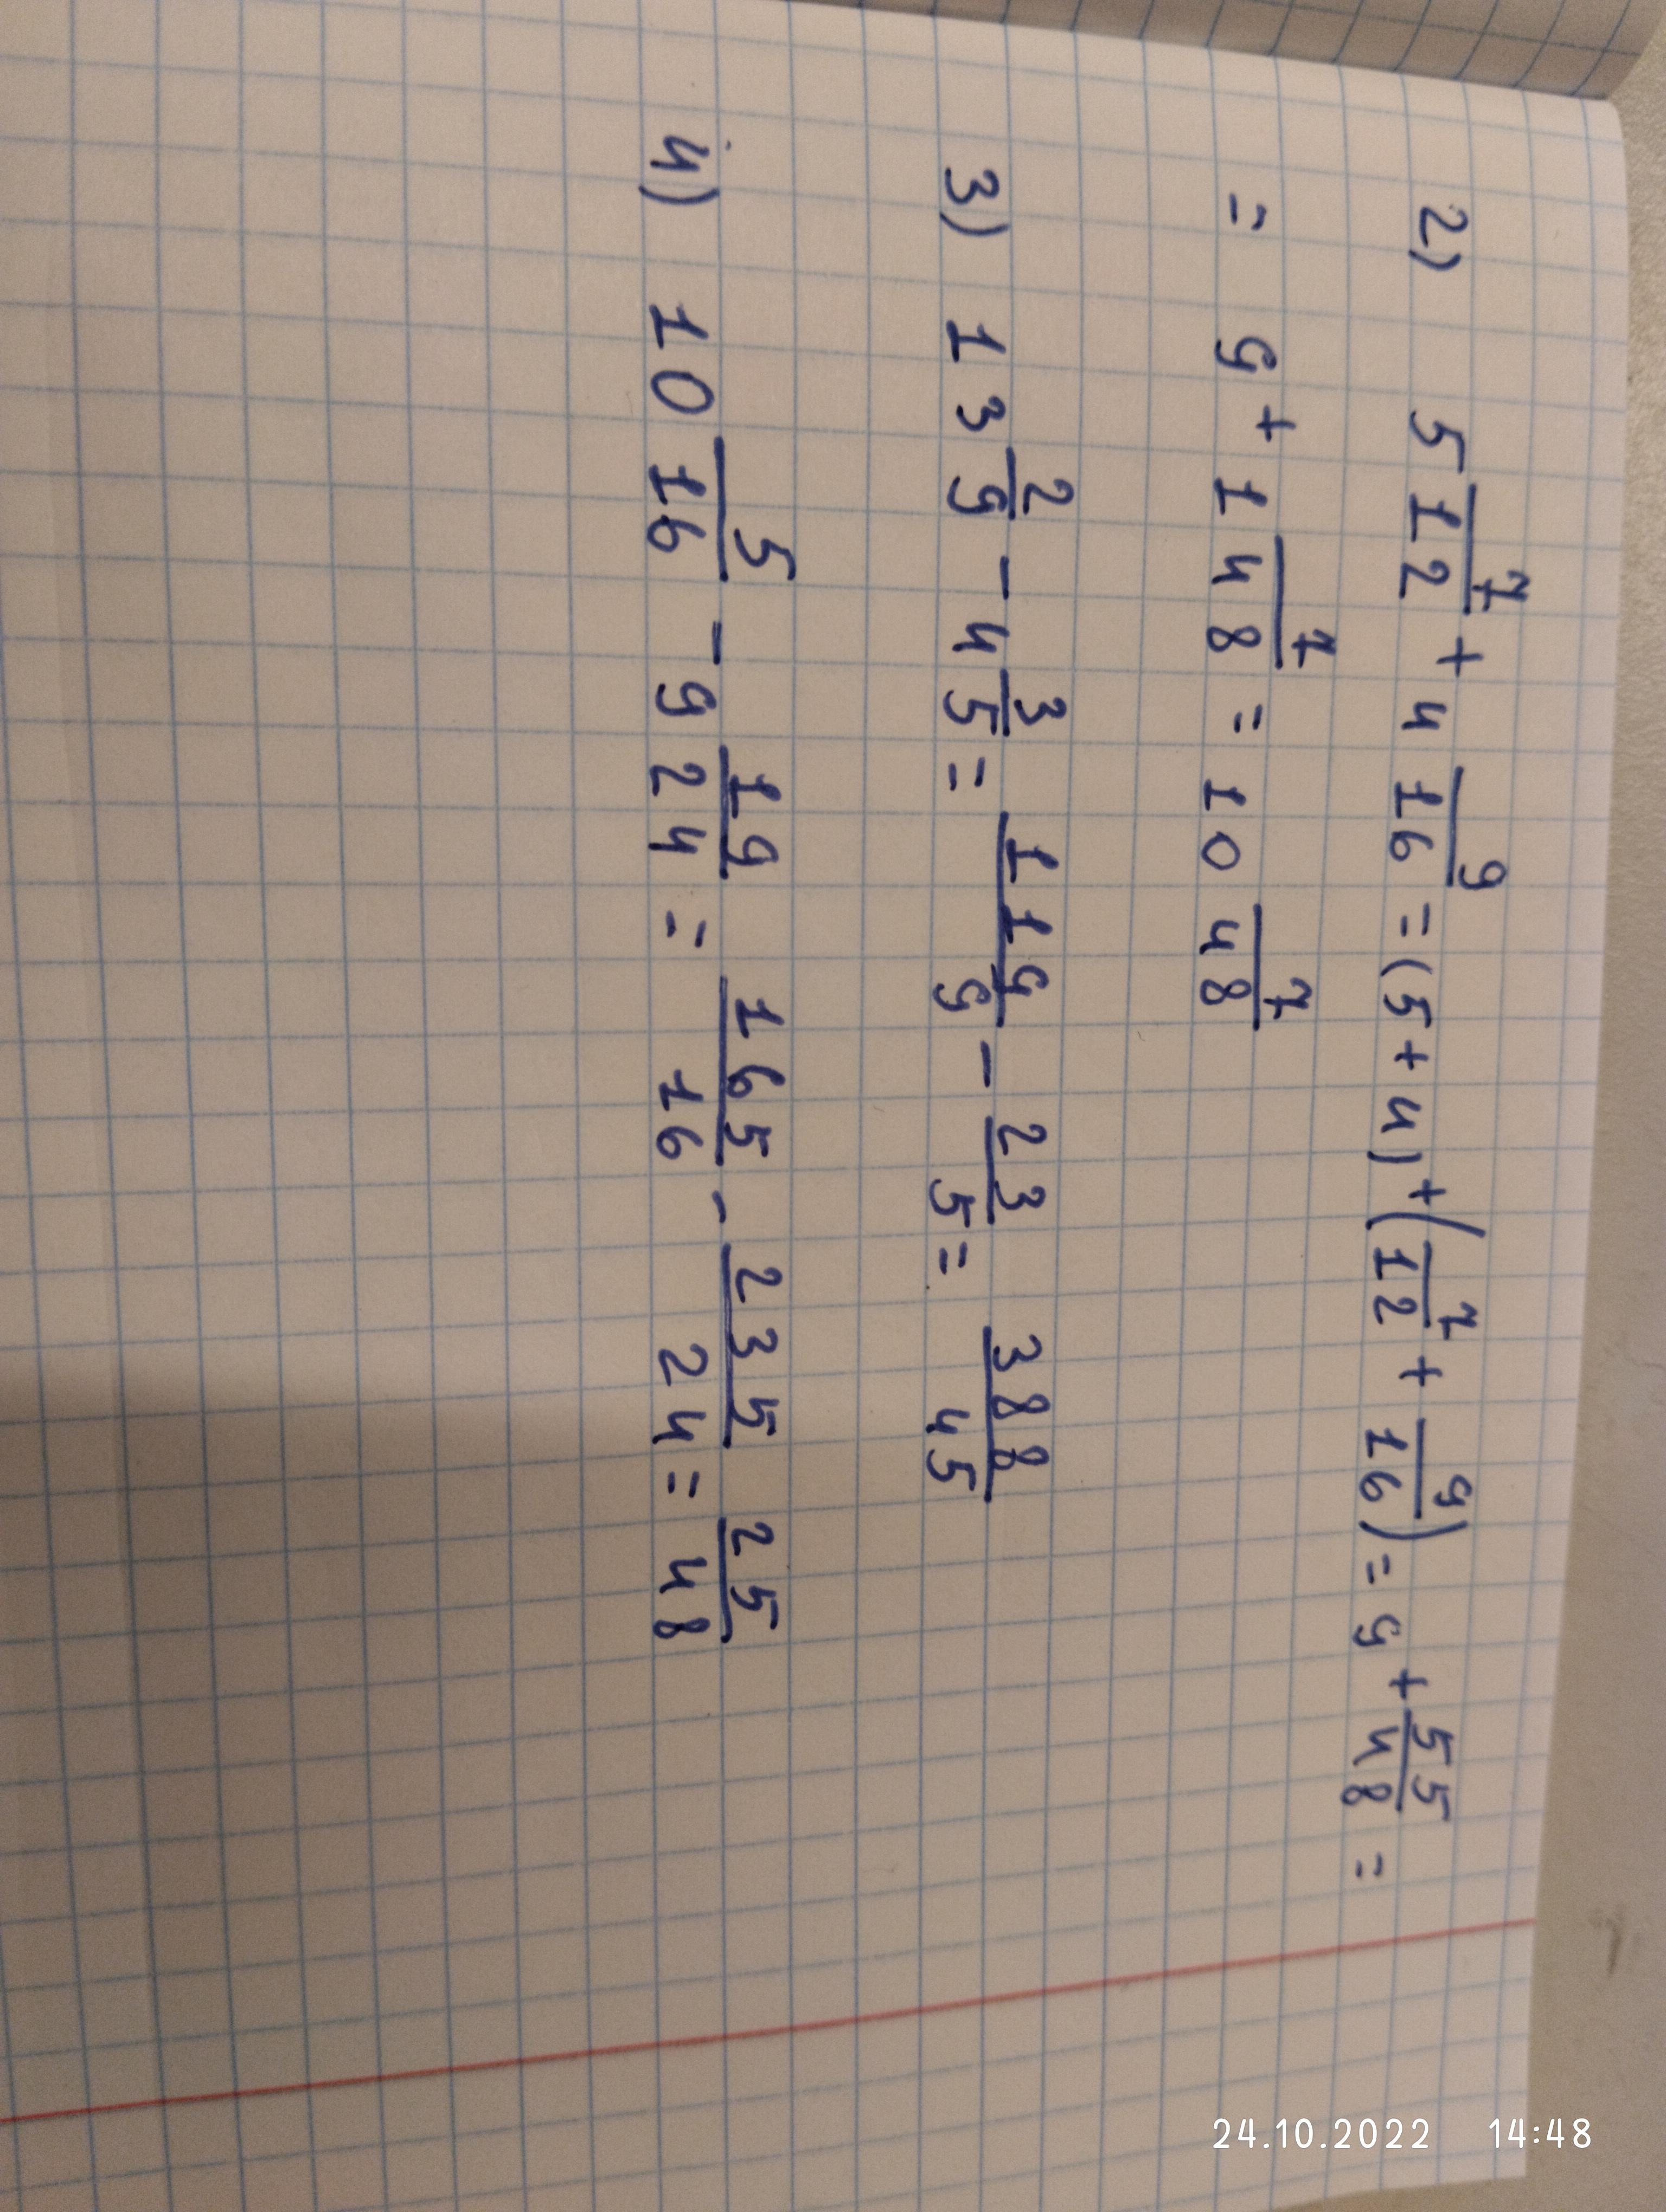 2) 5 7/12 + 4 9/16 = (5 + 4) + (7/12 + 9/16) = 9 + 55/48 =
= 9 + 1 7/48 = 10 7/48
3) 13 2/9 - 4 3/5 = 119/9 - 23/5 = 388/45
4) 10 5/16 - 9 19/24 = 165/16 - 235/24 = 25/48
24.10.2022 14:48